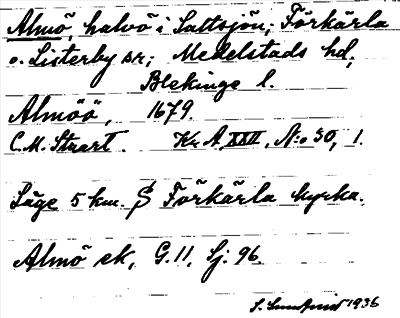 Almö, halvö i Saltsjön; Förkärla
o. Listerby sr; Medelstads hd;
Blekinge l.
Almöö, 1679.
C.M. Strart. Kr. A. XXII, N:o 30, 1.
Läge 5 km. S Förkärla kyrka.
Almö ek, G.11, Sj. 96.
S. 1936